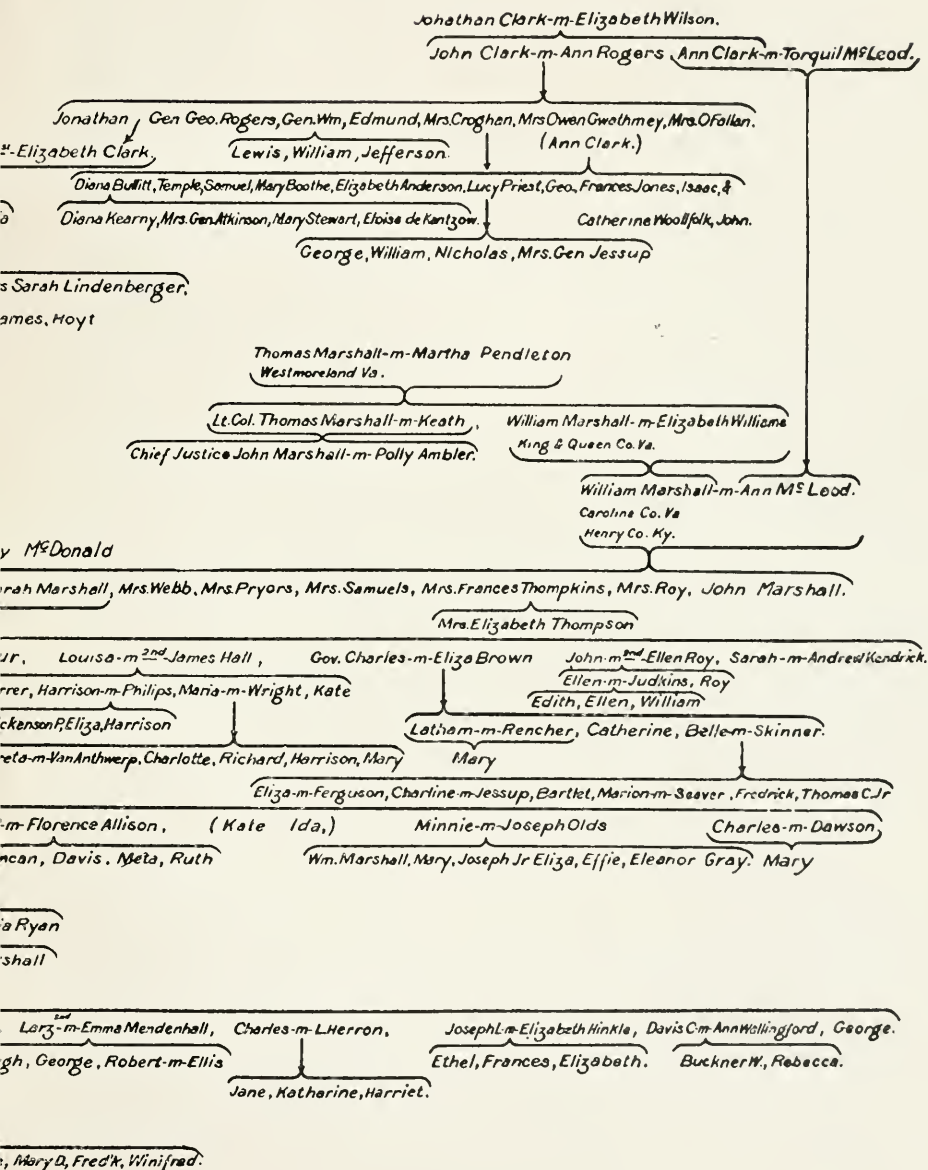 Johathan Clark-m-Elizabeth Wilson.
John Clark-m-Ann Rogers Ann Clark-m-Torquil McLeod.
Jonathan Gen Geo. Rogers, Gen. Wm, Edmund, Mrs. Croghan, Mrs Owen Gwathmey, Mrs. O'Fallan.
st-Elizabeth Clark, Lewis, William, Jefferson. (Ann Clark.)
Diana Bullitt, Temple, Samuel, Mary Boothe, Elizabeth Anderson, Lucy Priest, Geo, Frances Jones, Isaac, &
ia Diana Kearny, Mrs. Gen Atkinson, Mary Stewart, Eloise de Kantzow. Catherine Woollfolk, John.
George, William, Nicholas, Mrs. Gen Jessup
s Sarah Lindenberger,
ames, Hoyt
Thomas Marshall-m-Martha Pendleton
Westmoreland Va.
Lt. Col. Thomas Marshall-m-Keath, William Marshall-m-Elizabeth Williams
King & Queen Co. Va.
Chief Justice John Marshall-m-Polly Ambler.
William Marshall-m-Ann Mc Leod.
Caroline Co. Va
Henry Co. Ky.
y McDonald
rah Marshall, Mrs. Webb, Mrs. Pryors, Mrs. Samuels, Mrs. Frances Thompkins, Mrs. Roy, John Marshall.
Mrs. Elizabeth Thompson
ur, Louisa-m 2nd James Hall, Gov. Charles-m-Eliza Brown John-m 2nd Ellen Roy, Sarah-m-Andrew Kendrick.
rrer, Harrison-m-Philips, Maria-m-Wright, Kate Ellen-m-Judkins, Roy
Edith, Ellen, William
ckenson P, Eliza, Harrison
Latham-m-Rencher, Catherine, Belle-m-Skinner.
reta-m-VanAnthwerp, Charlotte, Richard, Harrison, Mary Mary
Eliza-m-Ferguson, Charline-m-Jessup, Bartlet, Marion-m-Seaver, Fredrick, Thomas C. Jr
-m-Florence Allison, (Kate Ida,) Minnie-m-Joseph Olds Charles-m-Dawson,
ncan, Davis, Meta, Ruth Wm. Marshall, Mary, Joseph Jr Eliza, Effie, Eleanor Gray. Mary
ia Ryan
rshall
Larz 2nd-m-Emma Mendenhall, Charles-m-L. Herron, Joseph L-m-Elizabeth Hinkle, Davis C-m-Ann Wallingford, George.
gh, George, Robert-m-Ellis Ethel, Frances, Elizabeth. Buckner W., Rebecca.
Jane, Katharine, Harriet.
e, Mary D, Fred'k, Winifred.